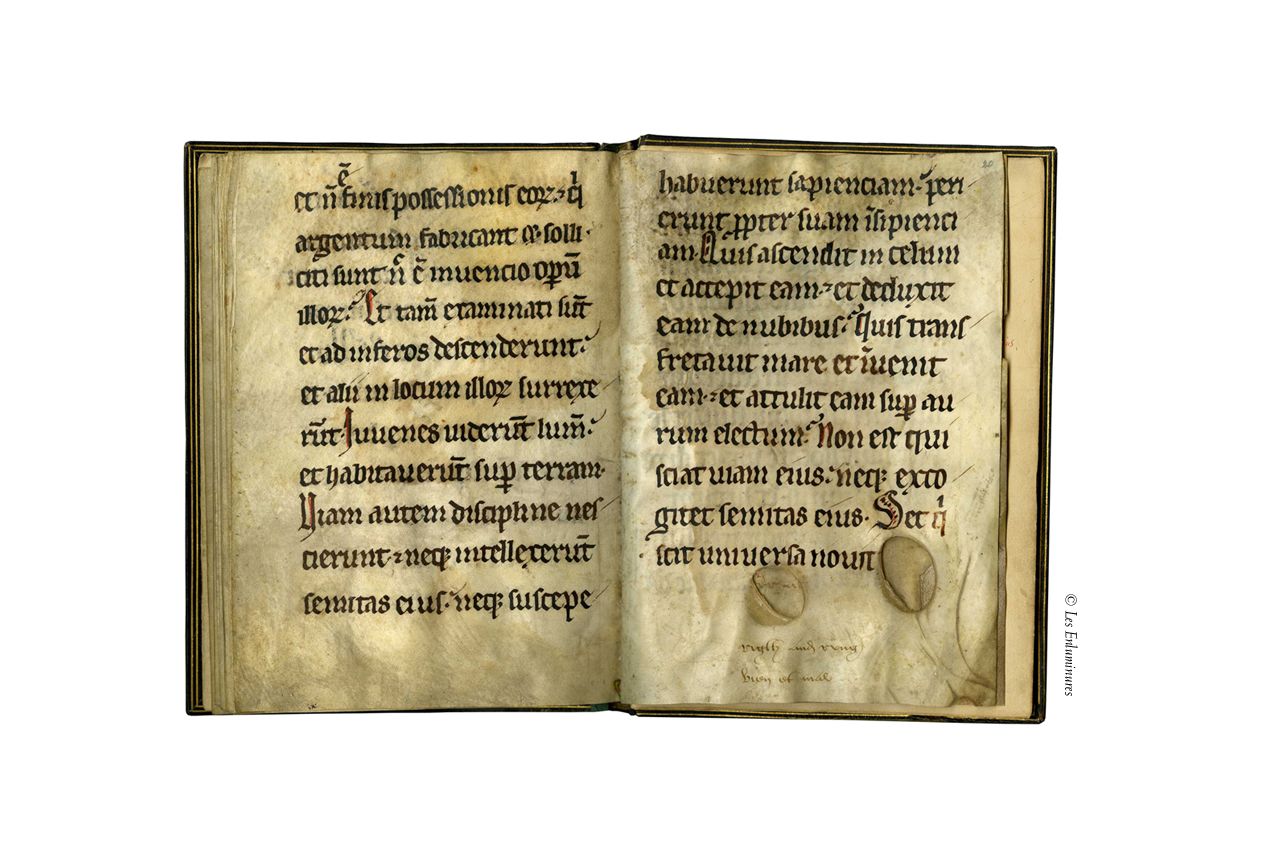 et n̄ ē finis possessionis eoꝝ. qͥ
argentum fabricant et solli
citi sunt n̄ ē invencio op̄ū
illoꝝ. Et tam̄ exaīnati sūt
et ad inferos descenderunt.
et alii in locum illoꝝ surrexe
rūt. Iuvenes viderūt lum̄.
et habitaverūt suꝑ terram.
Viam autem discipline nes
cierunt. neqꝫ intellexerūt
semitas eius. neqꝫ suscepe
20
habuerunt sapienciam. ꝑeri
erunt ꝓpter suam īsipienci
am. Quis ascendit in celum
et accepit eam. et deduxit
eam de nubibus. Quis trans
fretavit mare et īvenit
eam. et attulit eam suꝑ au
rum electum. Non est qui
sciat viam eius. neqꝫ exco
gitet semitas eius. Set qͥ
scit universa novit
rigth and rong
bien et mal
© Les Enluminures